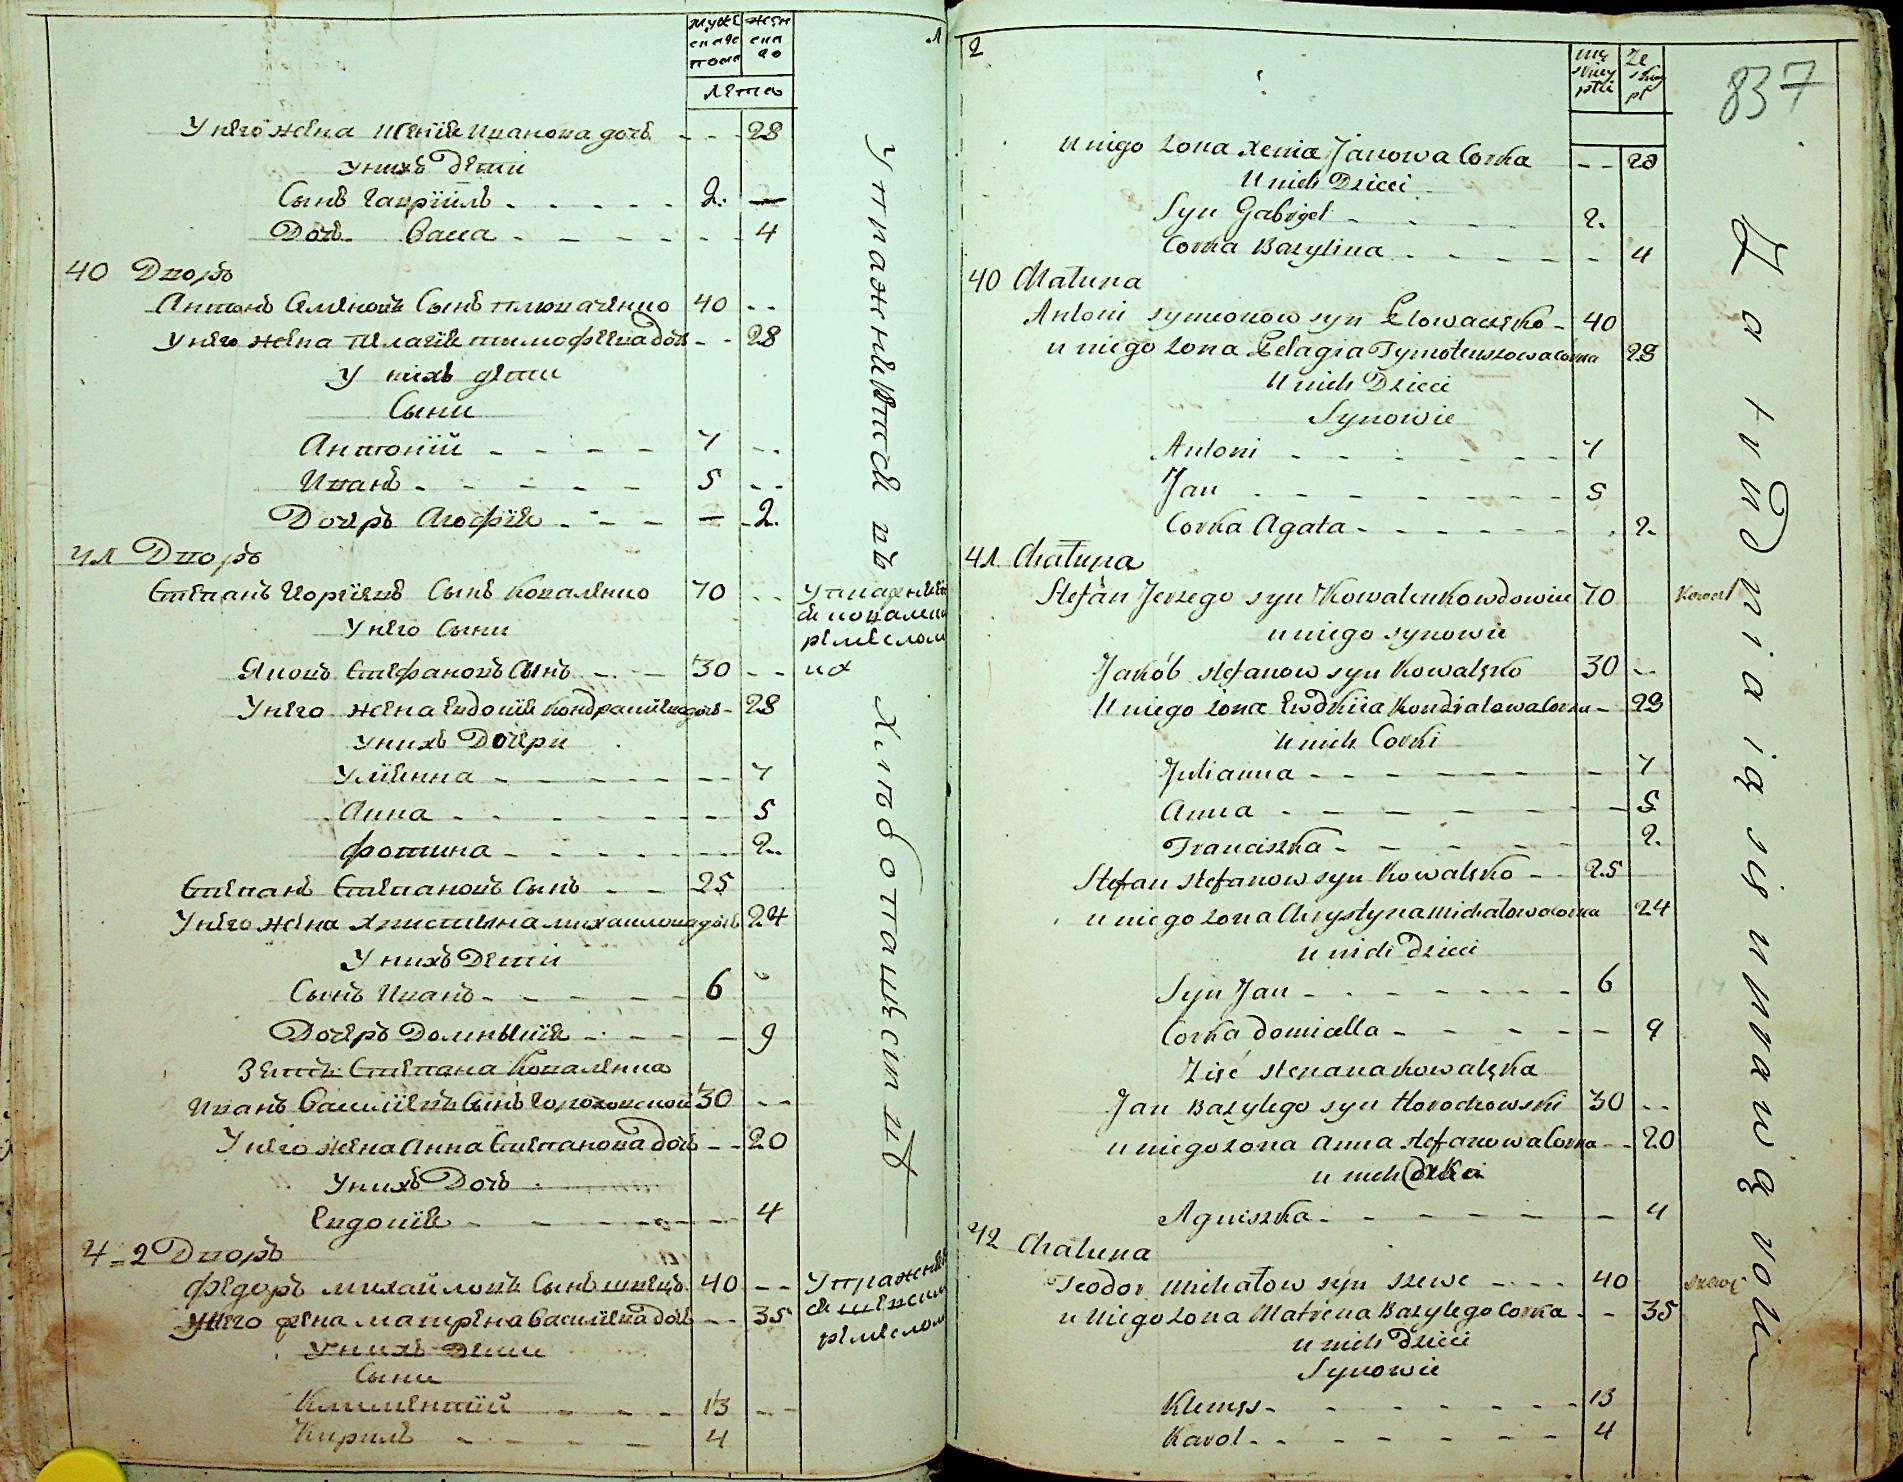 мужеска пола
женска го
лета
У него жена Ксения Иванова дочь - - - 28
У нихъ дети
Сынъ Гавріилъ - - - - - 2. —
Дочь Васса - - - - - - - 4
40 Дворъ
Антонъ Семеновъ Сынъ Пловаченко 40 - -
У него жена Пелагія Тимофеева дочь - - 28
У нихъ дети
Сыни
Антоній - - - - 7 - -
Иванъ - - - - - 5 - -
Дочеръ Агафія - - - — - 2.
41 Дворъ
Стефанъ Юрііевъ Сынъ Коваленко 70 - -
У него Сыни
Яковъ Стефановъ Сынъ - - - 30 - -
У него жена Евдокія Кондратіева дочь - 28
У нихъ Дочери
Уліянна - - - - - - 7
Анна - - - - - - - 5
Фотина - - - - - - 2.
Степанъ Степановъ Сынъ - - 25
У него жена Христина Михаилова дочь 24
У нихъ Дети
Сынъ Иванъ - - - - - 6
Дочеръ Домникія - - - - 9
Зеть Степана Коваленка
Иванъ Василіевъ Сынъ Гороховской 30 - -
У него жена Анна Степанова дочь - - 20
У нихъ Дочь
Евдокія - - - - - - - 4
42 Дворъ
Федоръ Михайловъ Сынъ швецъ 40 - -
У него жена Матрена Василіева дочь - - 35
У нихъ Дети
Сыни
Климентій - - - - 13 - -
Кирилъ - - - - - 4
Упражняется
ковалски
ремеслом
Упражняется въ Хлебопашестве
Упражняется
шевским
ремеслом
1
2
męskiey płci
żeskiey pł
837
u niego żona Xenia Janowa Corka - - 28
U nich Dzieci
Syn Gabryel - - - - 2.
Corka Bazylina - - - - - - 4
40 Chałupa
Antoni Symeonow syn Płowaczęko - 40
u niego żona Pelagia Tymoteuszowa corka 28
U nich Dzieci
Synowie
Antoni - - - - - - - 7
Jan - - - - - - - - 5
Corka Agata - - - - - - . 2.
41 Chałupa
Stefan Jerzego syn Kowalenko wdowiec 70
Kowal
u niego synowie
Jakób Stefanow syn Kowalęko 30 - -
U niego żona Ewdokia Kondratowa Corka - 28
U nich Corki
Julianna - - - - - - - 7
Anna - - - - - - - - 5
Franciszka - - - - - - 2.
Stefan Stefanow syn Kowalęko - - 25
u niego żona Chrystyna Michałowa corka 24
u nich dzieci
Syn Jan - - - - - - - 6
Corka Domicella - - - - - - 9
Zięć Stepana Kowalęka
Jan Bazylego syn Horochowski 30 - -
u niego żona Anna Stefanowa Corka - - 20
u nich
Agniszka - - - - - - - 4
42 Chałupa
Teodor Michałow syn Szewc - - - - 40
szewc
u Niego żona Matrena Bazylego Corka - - 35
u nich Dzieci
Synowie
Klemęs - - - - - - - - 13
Karol - - - - - - - 4
Zatrudniaią się uprawą roli